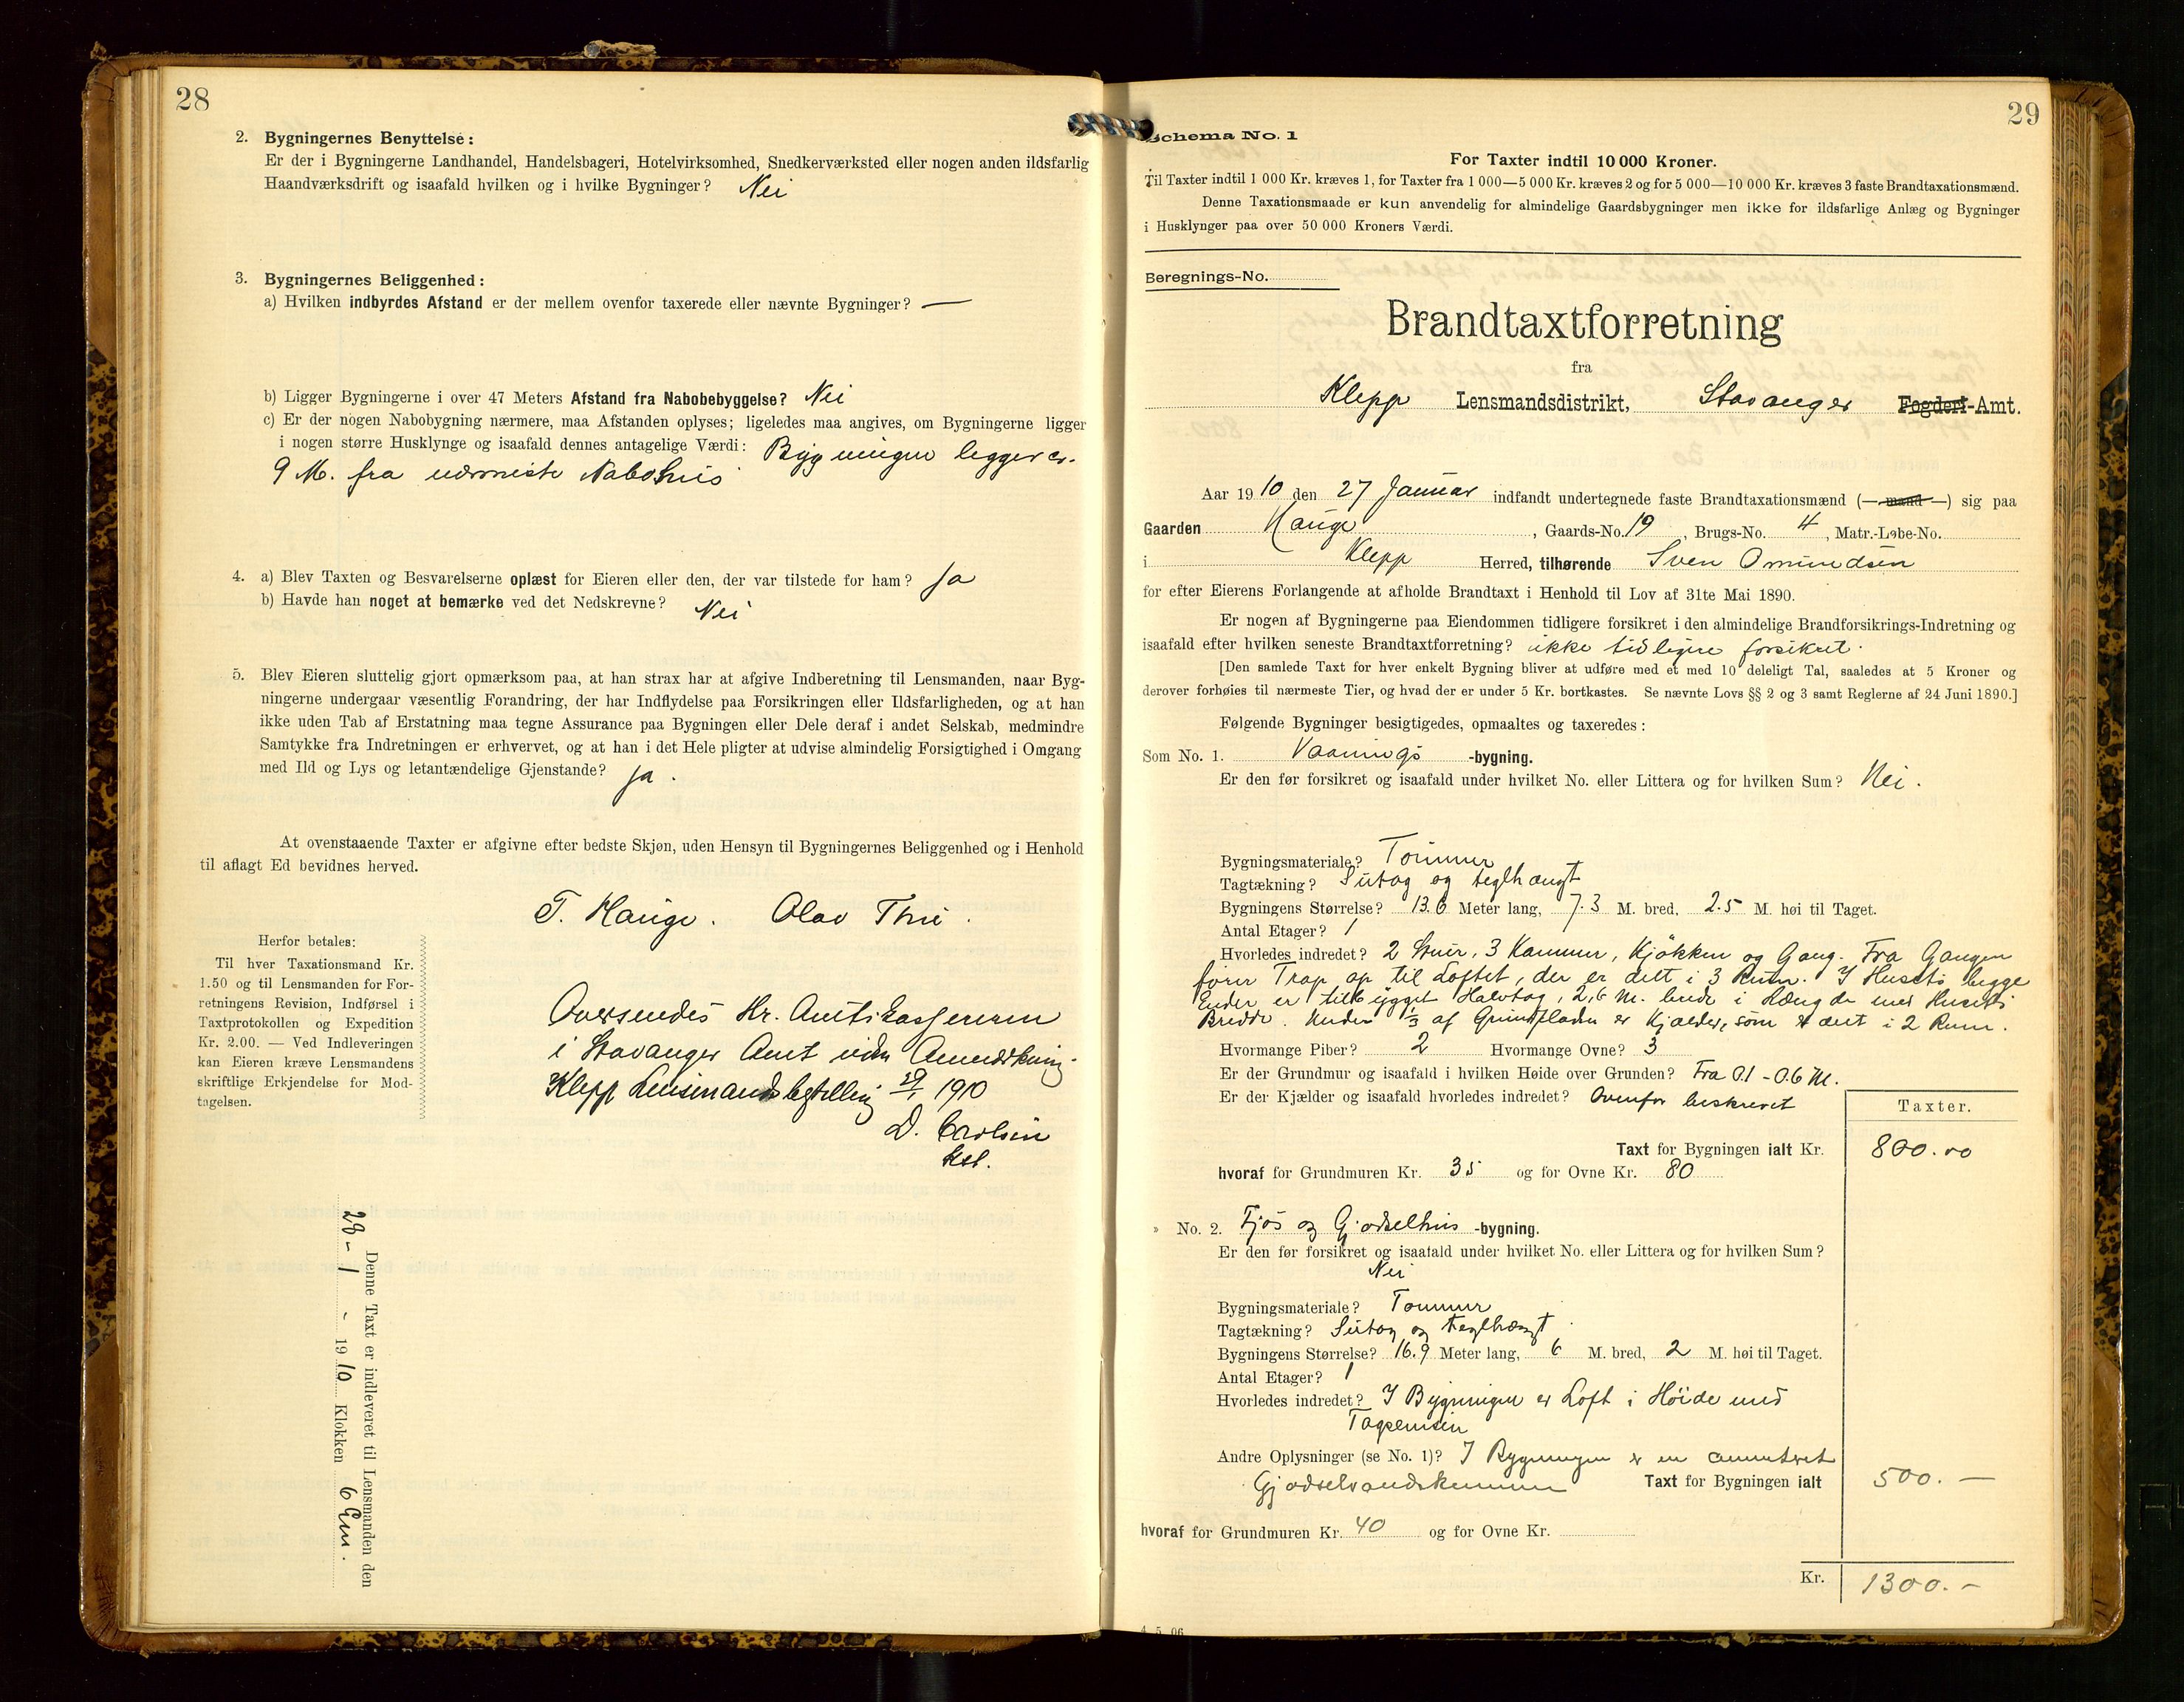 28
2. Bygningernes Benyttelse:
Er der i Bygningerne Landhandel, Handelsbageri, Hotelvirksomhed, Snedkerværksted eller nogen anden ildsfarlig
Haandværksdrift og isaafald hvilken og i hvilke Bygninger? Nei
3. Bygningernes Beliggenhed:
a) Hvilken indbyrdes Afstand er der mellem ovenfor taxerede eller nævnte Bygninger? —
b) Ligger Bygningerne i over 47 Meters Afstand fra Nabobebyggelse? Nei
c) Er der nogen Nabobygning nærmere, maa Afstanden oplyses; ligeledes maa angives, om Bygningerne ligger
i nogen større Husklynge og isaafald dennes antagelige Værdi: Bygningen ligger ca.
9 M. fra nærmeste Nabohus
4. a) Blev Taxten og Besvarelserne oplæst for Eieren eller den, der var tilstede for ham? Ja
b) Havde han noget at bemærke ved det Nedskrevne? Nei
5. Blev Eieren sluttelig gjort opmærksom paa, at han strax har at afgive Indberetning til Lensmanden, naar Byg-
ningerne undergaar væsentlig Forandring, der har Indflydelse paa Forsikringen eller Ildsfarligheden, og at han
ikke uden Tab af Erstatning maa tegne Assurance paa Bygningen eller Dele deraf i andet Selskab, medmindre
Samtykke fra Indretningen er erhvervet, og at han i det Hele pligter at udvise almindelig Forsigtighed i Omgang
med Ild og Lys og letantændelige Gjenstande? Ja.
At ovenstaaende Taxter er afgivne efter bedste Skjøn, uden Hensyn til Bygningernes Beliggenhed og i Henhold
til aflagt Ed bevidnes herved.
T. Hauge. Olav Thu.
Herfor betales:
Til hver Taxationsmand Kr.
1.50 og til Lensmanden for For-
retningens Revision, Indførsel i
Taxtprotokollen og Expedition
Kr. 2.00. — Ved Indleveringen
kan Eieren kræve Lensmandens
skriftlige Erkjendelse for Mod-
tagelsen.
Oversendes Hr. Amtskassereren
i Stavanger Amt uden Anmerkning.
Klepp Lensmandsbestilling 29/1 1910
D. Carlsen
Kst.
Denne Taxt er indleveret til Lensmanden den
28 - 1 - 1910 Klokken 6 Em.
29
Schema No. 1
For Taxter indtil 10 000 Kroner.
Til Taxter indtil 1 000 Kr. kræves 1, for Taxter fra 1 000—5 000 Kr. kræves 2 og for 5 000—10 000 Kr. kræves 3 faste Brandtaxationsmænd.
Denne Taxationsmaade er kun anvendelig for almindelige Gaardsbygninger men ikke for ildsfarlige Anlæg og Bygninger
i Husklynger paa over 50 000 Kroners Værdi.
Beregnings-No.
Brandtaxtforretning
fra
Klepp Lensmandsdistrikt, Stavanger Fogderi-Amt.
Aar 1910 den 27 Januar indfandt undertegnede faste Brandtaxationsmænd (—mand—) sig paa
Gaarden Hauge, Gaards-No. 19, Brugs-No. 4, Matr.-Løbe-No.
i Klepp Herred, tilhørende Sven Omundsen
for efter Eierens Forlangende at afholde Brandtaxt i Henhold til Lov af 31te Mai 1890.
Er nogen af Bygningerne paa Eiendommen tidligere forsikret i den almindelige Brandforsikrings-Indretning og
isaafald efter hvilken seneste Brandtaxtforretning? ikke tidligere forsikret.
[Den samlede Taxt for hver enkelt Bygning bliver at udføre med et med 10 deleligt Tal, saaledes at 5 Kroner og
derover forhøies til nærmeste Tier, og hvad der er under 5 Kr. bortkastes. Se nævnte Lovs §§ 2 og 3 samt Reglerne af 24 Juni 1890.]
Følgende Bygninger besigtigedes, opmaaltes og taxeredes:
Som No. 1. Vaanings -bygning.
Er den før forsikret og isaafald under hvilket No. eller Littera og for hvilken Sum? Nei.
Bygningsmateriale? Tømmer
Tagtækning? Sutag og teglhængt
Bygningens Størrelse? 13.6 Meter lang, 7.3 M. bred, 2.5 M. høi til Taget.
Antal Etager? 1
Hvorledes indredet? 2 Stuer, 3 Kammer, Kjøkken og Gang. Fra Gangen
fører Trap op til Loftet, der er delt i 3 Rum. I Husets begge
Ender er tilbygget Halvtag, 2,6 M. brede i Længde med Husets
Bredde. Under 1/3 af Grundfladen er Kjælder, som er delt i 2 Rum.
Hvormange Piber? 2 Hvormange Ovne? 3
Er der Grundmur og isaafald i hvilken Høide over Grunden? Fra 0.1 - 0.6 M.
Er der Kjælder og isaafald hvorledes indredet? Ovenfor beskrevet
Taxter.
Taxt for Bygningen ialt Kr. 800.00
hvoraf for Grundmuren Kr. 35 og for Ovne Kr. 80
» No. 2. Fjøs og Gjødselhus -bygning.
Er den før forsikret og isaafald under hvilket No. eller Littera og for hvilken Sum?
Nei
Bygningsmateriale? Tømmer
Tagtækning? Sutag og teglhængt
Bygningens Størrelse? 16.9 Meter lang, 6 M. bred, 2 M. høi til Taget.
Antal Etager? 1
Hvorledes indredet? I Bygningen er Loft i Høide med
Tagremsen
Andre Oplysninger (se No. 1)? I Bygningen er en cementeret
Gjødselvandskummer Taxt for Bygningen ialt 500. —
hvoraf for Grundmuren Kr. 40 og for Ovne Kr.
Kr. 1300. -
4. 5. 06